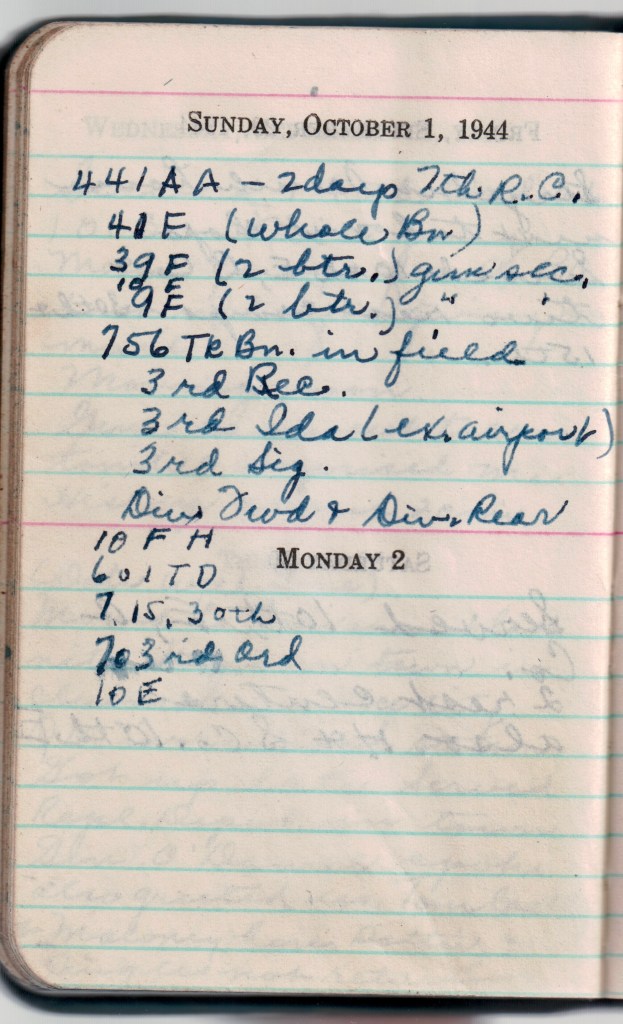 SUNDAY, OCTOBER 1, 1944
441 A A – 2 days 7th R.C.
41 F (whole Bn)
39 F (2 btr.) gun sec.
10 F
9 F (2 btr.) " "
756 TK Bn. in field
3rd Rec.
3rd (ex. airport)
3rd Sig.
Div. Fwd & Div. Rear
10 F H
MONDAY 2
601 T D
7, 15, 30th
703rd Ord
10 E